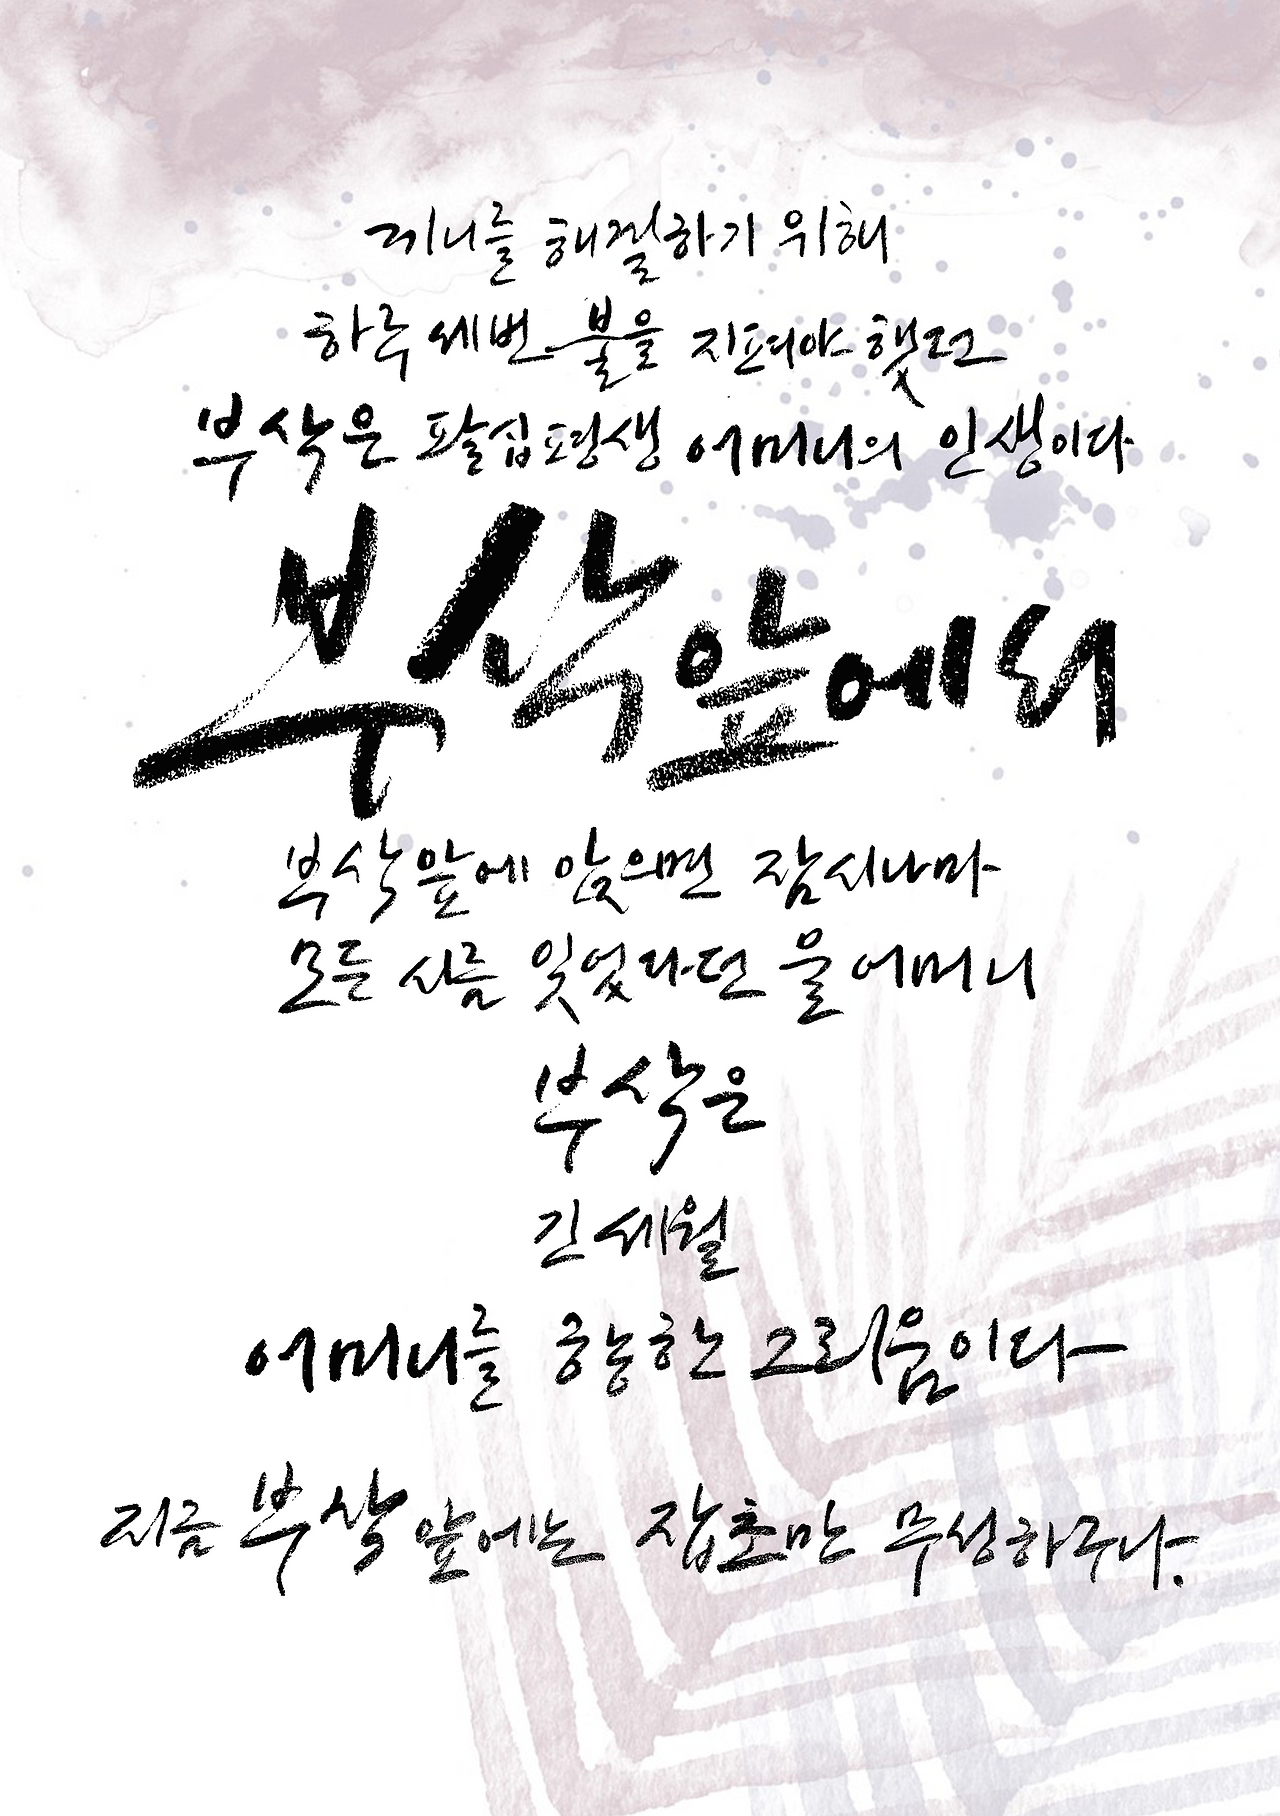 끼니를 해결하기 위해
하루 세번 불을 지펴야 했던
부삭은 팔십평생 어머니의 인생이다
부삭앞에서
부삭앞에 앉으면 잠시나마
모든 시름 잊었다던 울어머니
부삭은
긴 세월
어머니를 향한 그리움이다
지금 부삭앞에는 잡초만 무성하구나.